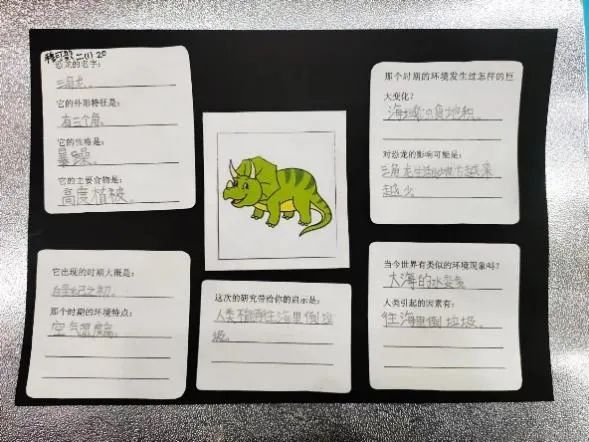 二(1) 20
恐龙的名字:
三角龙。
它的外形特征是:
有三个角。
它的性格是:
暴躁。
它的主要食物是:
高度植被。
它出现的时期大概是:
白垩纪之初。
那个时期的环境特点:
空气湿度高。
这次的研究带给你的启示是:
人类不能再往海里倒垃
圾。
那个时期的环境发生过怎样的巨
大变化?
海
地
积。
对恐龙的影响可能是:
三角龙生活的地方越来
越少。
当今世界有类似的环境现象吗?
大海的水变
人类引起的因素有:
往海里倒垃圾。